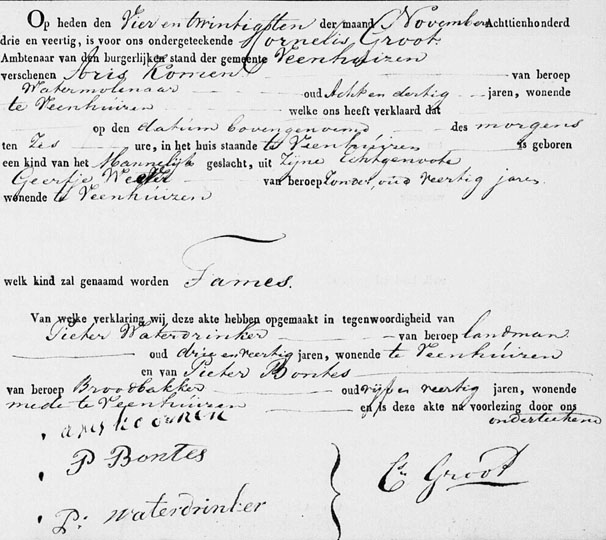 Op heden den Vier en twintigsten der maand November Achttienhonderd
drie en veertig, is voor ons ondergeteekende Kornelis Groot
Ambtenaar van den burgerlijken stand der gemeente Veenhuizen
verschenen Aris Komen van beroep
Watermolenaar oud Acht en dertig jaren, wonende
te Veenhuizen welke ons heeft verklaard dat
op den datum bovengenoemd des morgens
ten Zes ure, in het huis staande te Veenhuizen is geboren
een kind van het Mannelijk geslacht, uit Zijne Echtgenoote
Geertje van beroep Zonder, oud veertig jaren
wonende te Veenhuizen
welk kind zal genaamd worden James.
Van welke verklaring wij deze akte hebben opgemaakt in tegenwoordigheid van
Pieter Waterdrinker van beroep landman
oud drie en veertig jaren, wonende te Veenhuizen
en van Pieter Bontes
van beroep Broodbakker oud vijf en veertig jaren, wonende
mede te Veenhuizen en is deze akte na voorlezing door ons
onderteekend
P Bontes
C. Groot
P. Waterdrinker